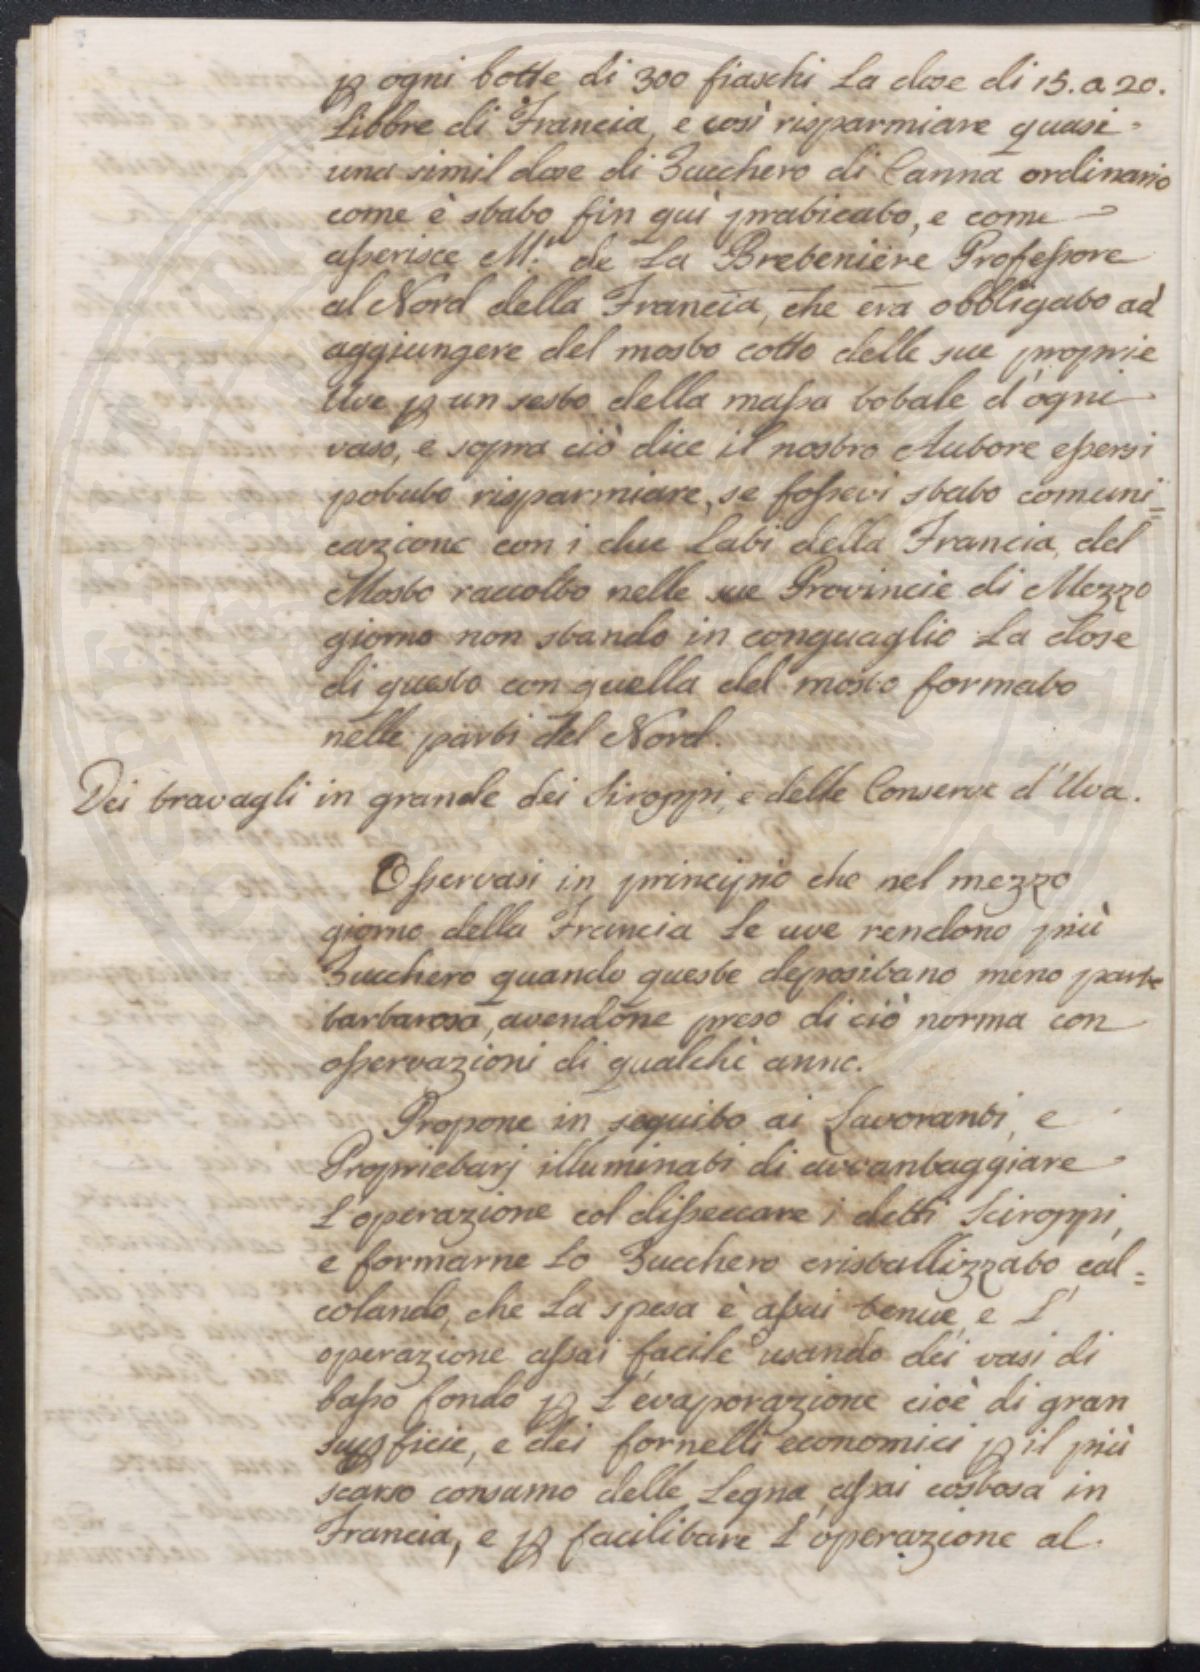 ꝑ ogni botte di 300 fiaschi La dose di 15. a 20.
Libbre di Francia, e così risparmiare quasi
una simil dose di Zucchero di Canna ordinario
come è stato fin qui praticato, e come
asserisce M.r de La Brebeniere Professore
al Nord della Francia, che era obbligato ad
aggiungere del mosto cotto delle sue proprie
Uve ꝑ un sesto della massa totale d'ogni
vaso, e sopra ciò dice il nostro Autore essersi
potuto risparmiare, se fossevi stato comuni=
cazione con i due Lati della Francia, del
Mosto raccolto nelle sue Provincie di Mezzo
giorno non stando in conguaglio La dose
di questo con quella del mosto formato
nelle parti del Nord.
Dei travagli in grande dei Siroppi, e delle Conserve d'Uva.
Osservasi in principio che nel mezzo
giorno della Francia Le uve rendono più
Zucchero quando queste depositano meno parte
tartarosa, avendone preso di ciò norma con
osservazioni di qualche anno.
Propone in seguito ai Lavoranti, e
Proprietarj illuminati di avvantaggiare
L'operazione col disseccare i detti Sciroppi,
e formarne Lo Zucchero cristallizzato, cal=
colando, che La spesa è assai tenue, e L'
operazione assai facile usando dei vasi di
basso fondo ꝑ L'evaporazione cioè di gran
suꝑficie, e dei fornelli economici ꝑ il più
scarso consumo delle Legna, assai costosa in
Francia, e ꝑ facilitare L'operazione al